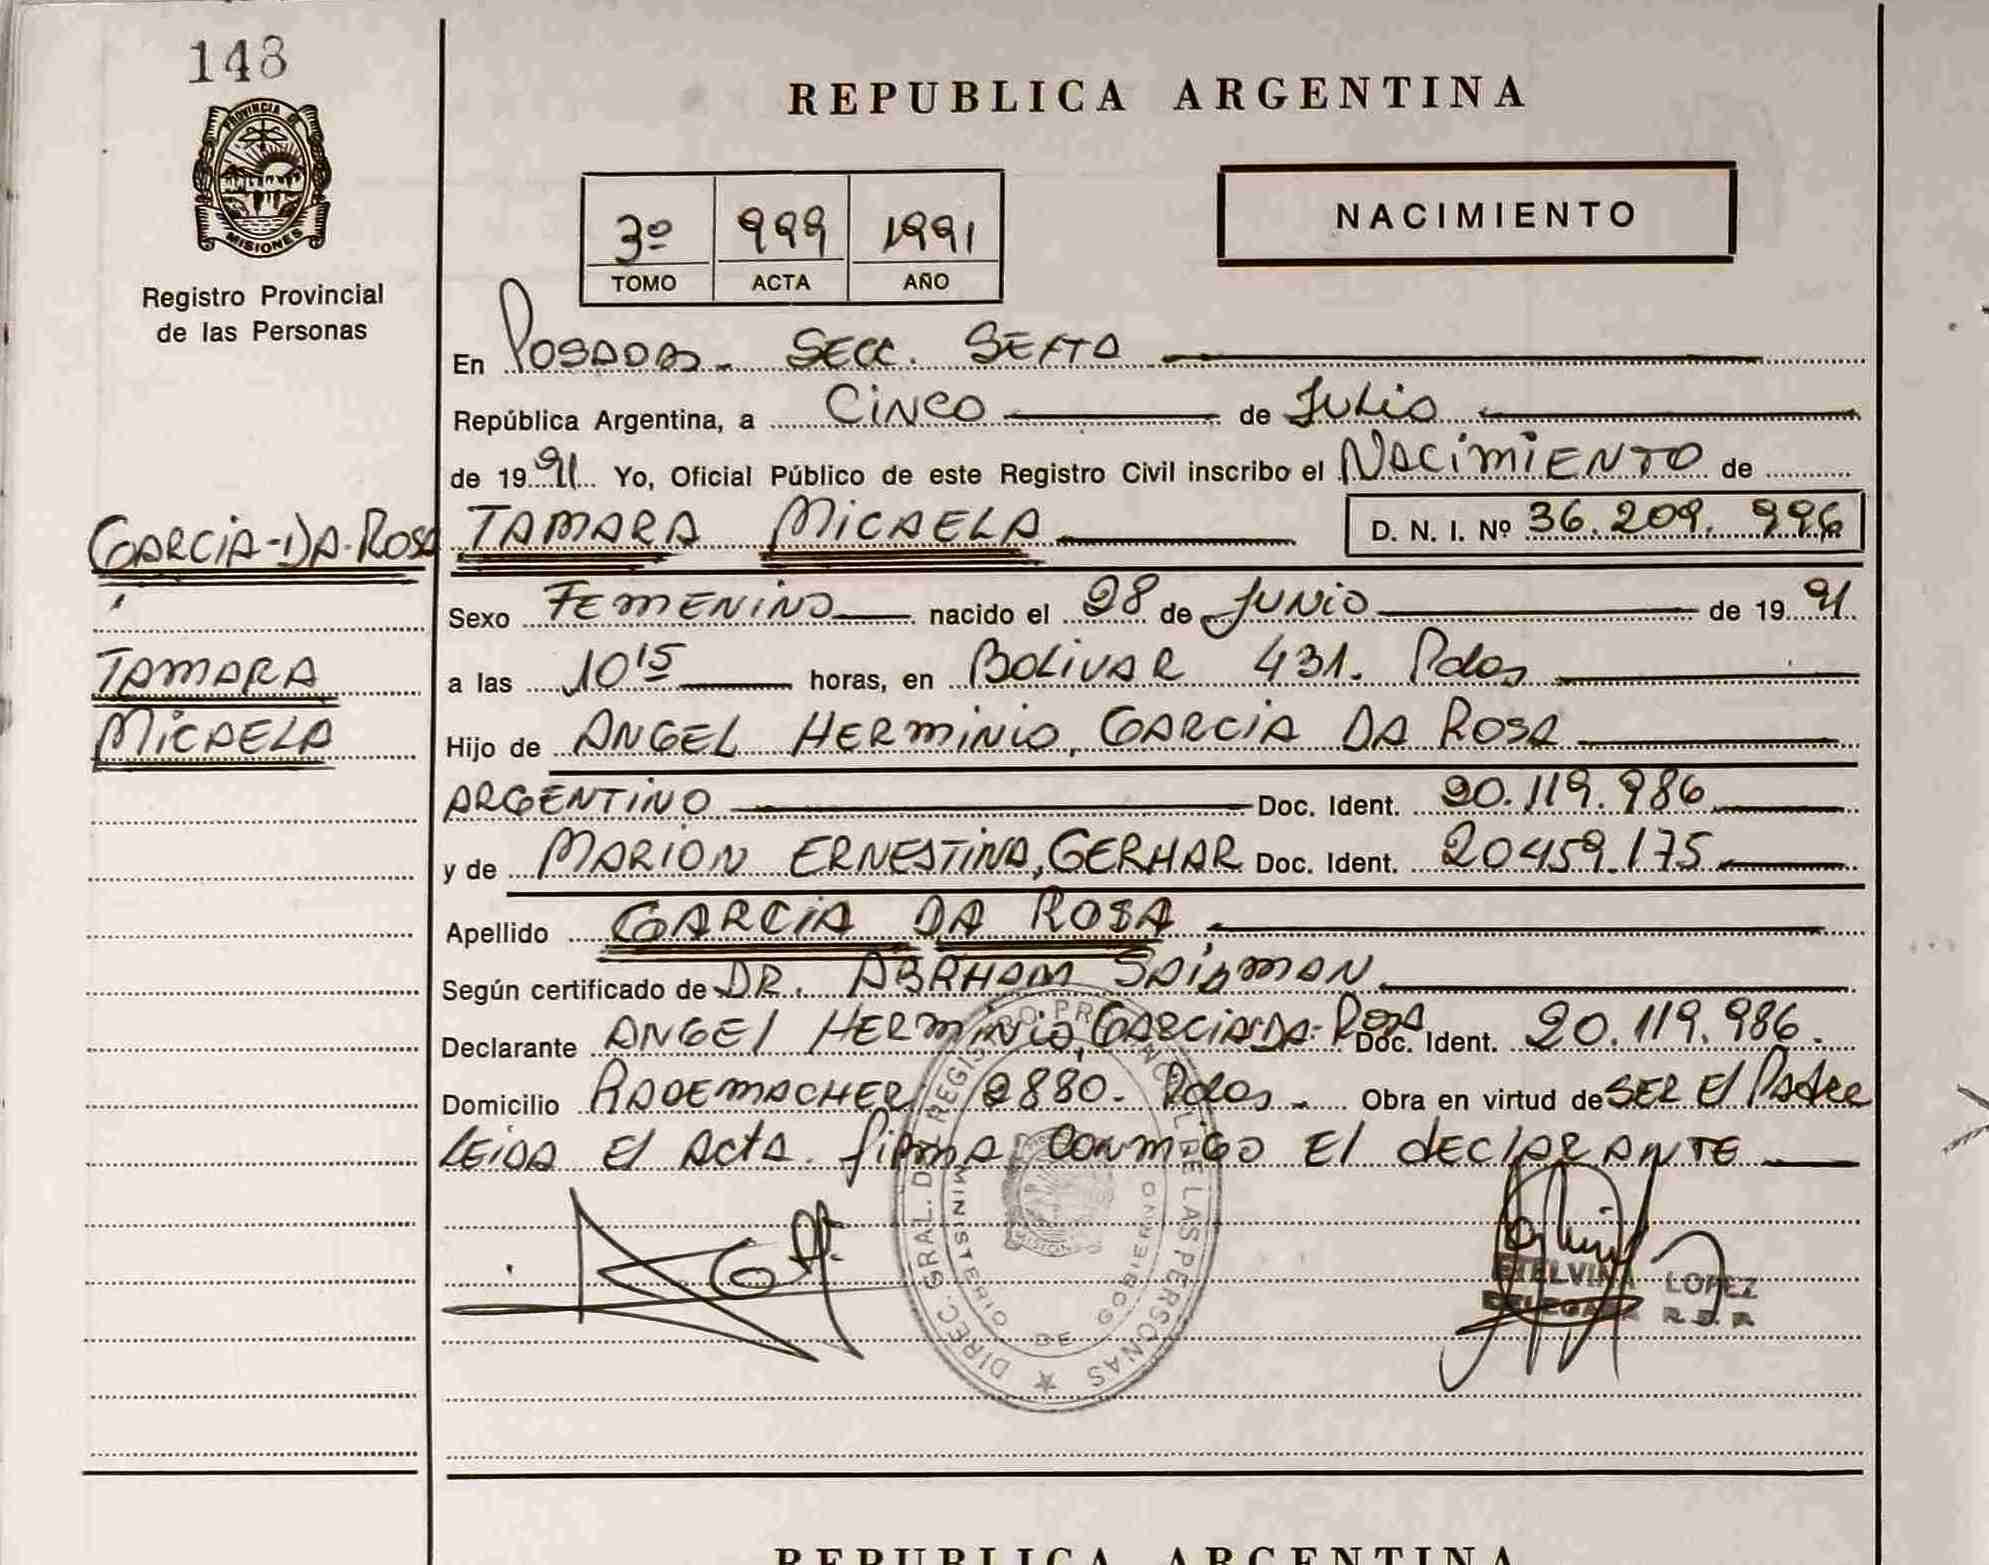 148
PROVINCIA DE
MISIONES
Registro Provincial
de las Personas
REPUBLICA ARGENTINA
3º 999 1991
TOMO ACTA AÑO
NACIMIENTO
En POSADAS - SECC. SEXTA
República Argentina, a CINCO de JULIO
de 1991 Yo, Oficial Público de este Registro Civil inscribo el NACIMIENTO de
GARCIA-DA-ROSA TAMARA MICAELA D. N. I. Nº 36.209.996
Sexo FEMENINO nacido el 28 de JUNIO de 1991
TAMARA a las 10 15 horas, en BOLIVAR 431. Pdas
MICAELA Hijo de ANGEL HERMINIO, GARCIA DA ROSA
ARGENTINO Doc. Ident. 20.119.986
y de MARION ERNESTINA, GERHAR Doc. Ident. 20459.175
Apellido GARCIA DA ROSA
Según certificado de DR. ABRHAM SAIDMAN
Declarante ANGEl HERMINIO, GARCIA-DA-ROSA Doc. Ident. 20.119.986.
Domicilio RADEMACHER 2880. Pdas - Obra en virtud de SER El Padre
LEIDA El Acta. firma conmigo El declARANTE
DIREC. GRAL. DE REGISTRO PROVINCIAL DE LAS PERSONAS
MINISTERIO DE GOBIERNO
ETELVINA LOPEZ
DELEGADA R.P.P.
REPUBLICA ARGENTINA